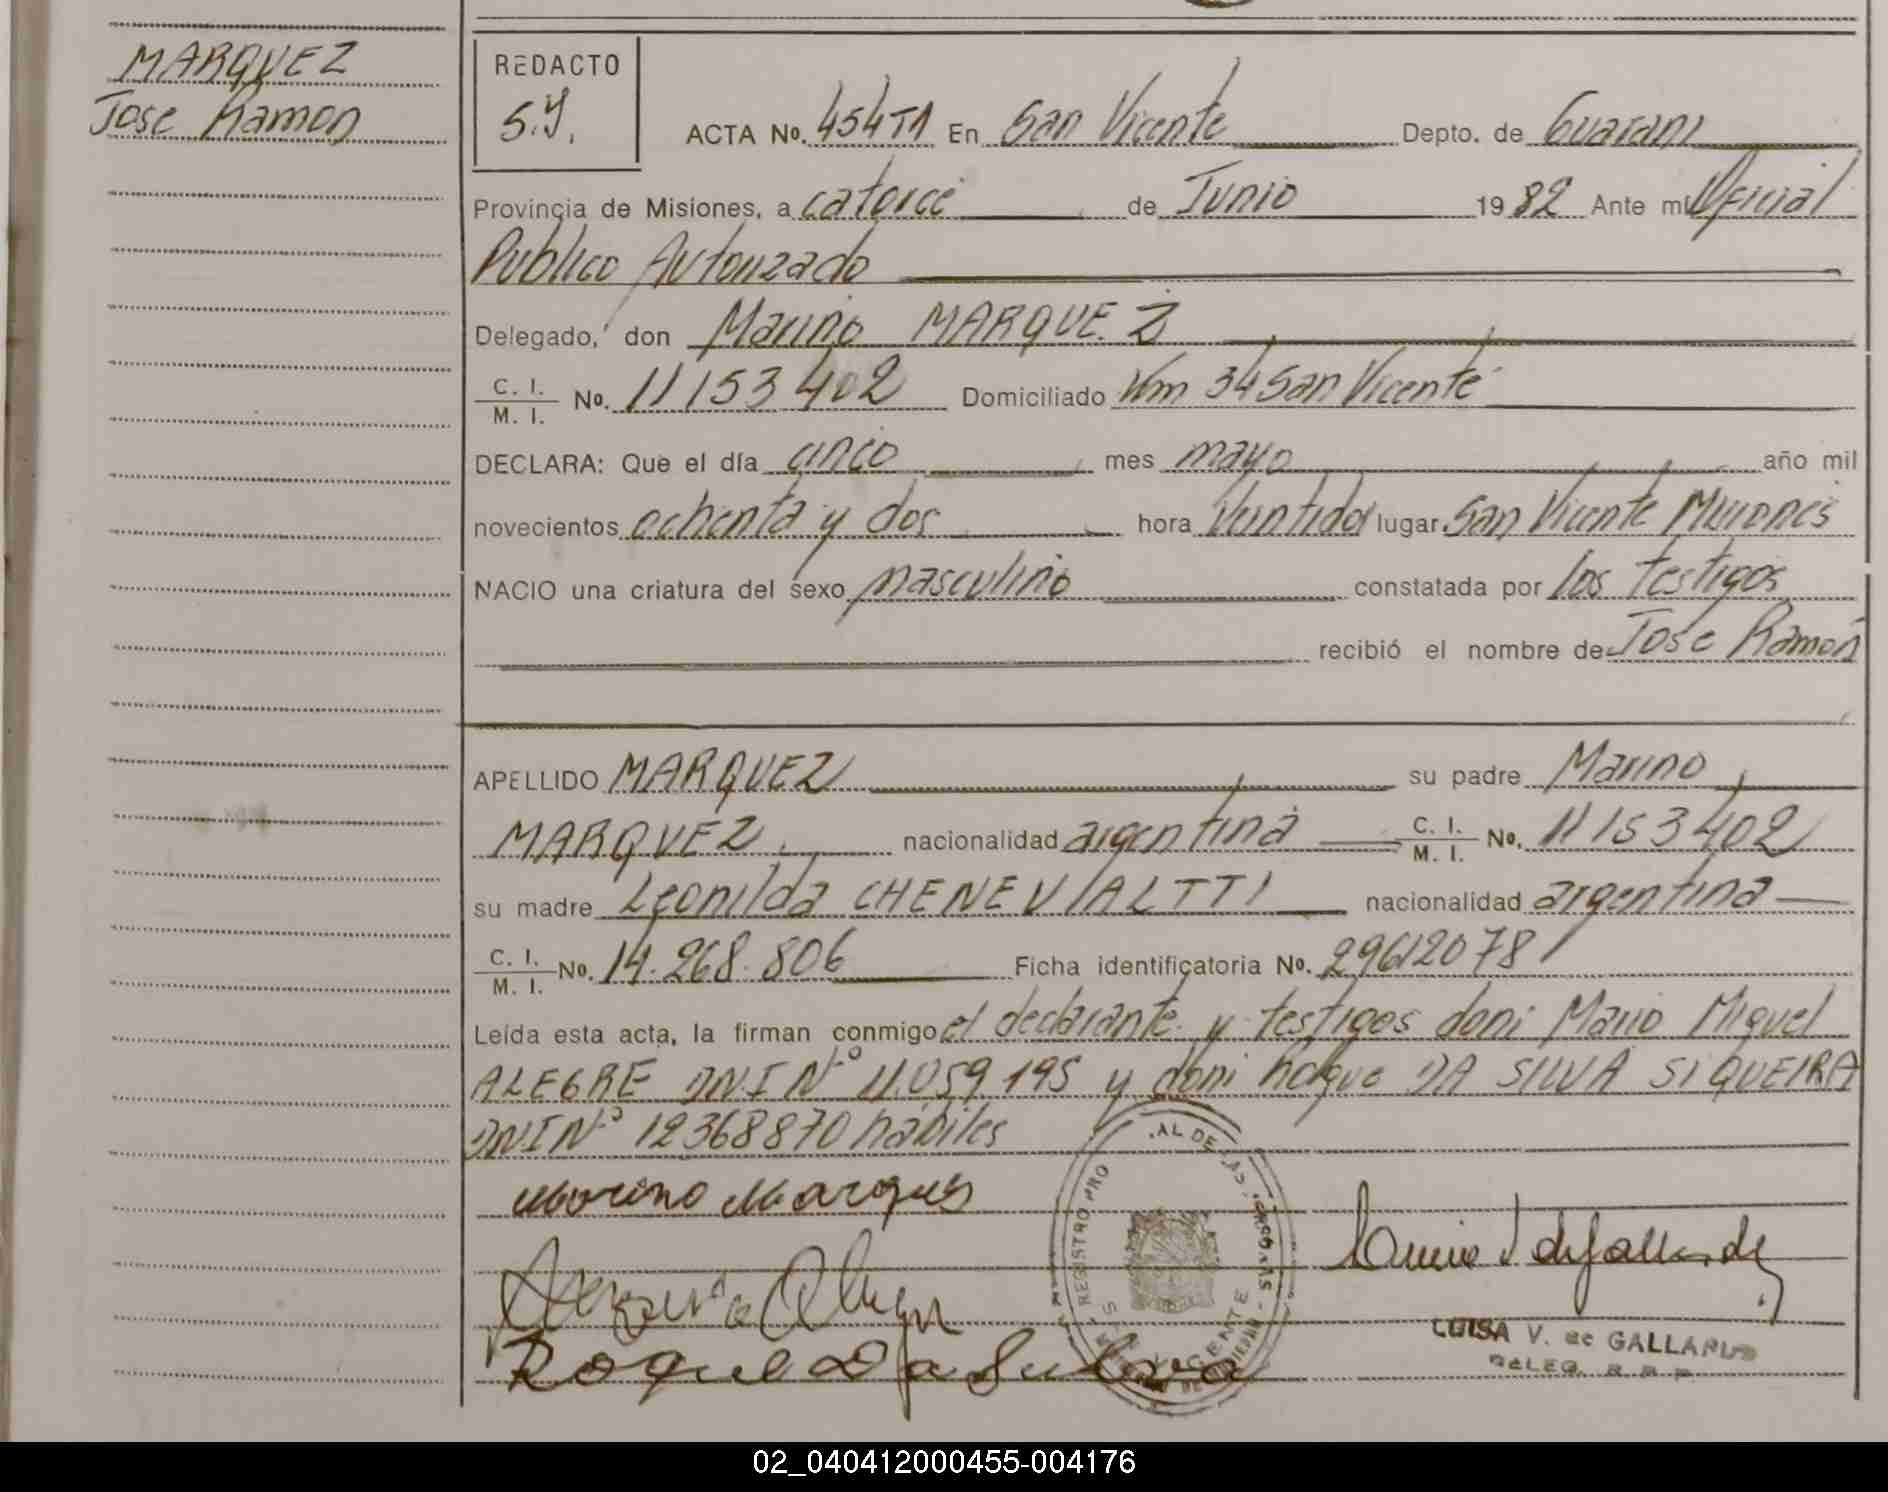 MARQUEZ
Jose Ramon
REDACTO
S.Y.
ACTA No. 454T1 En San Vicente Depto. de Guarani
Provincia de Misiones, a catorce de Junio 1982 Ante mí Oficial
Publico Autorizado
Delegado, don Marino MARQUEZ
C. I. / M. I. No. 11153402 Domiciliado Km 34 San Vicente
DECLARA: Que el día cinco mes mayo año mil
novecientos ochenta y dos hora Veintidos lugar San Vicente Misiones
NACIO una criatura del sexo masculino constatada por los testigos
recibió el nombre de Jose Ramón
APELLIDO MARQUEZ su padre Marino
MARQUEZ nacionalidad argentina C. I. / M. I. No. 11153402
su madre Leonilda CHENEVIALTTI nacionalidad argentina
C. I. / M. I. No. 14.268.806 Ficha identificatoria No. 29612078
Leída esta acta, la firman conmigo el declarante y testigos doni Mario Miguel
ALEGRE DNI Nº 11.059.195 y doni Rolque DA SILVA SIQUEIRA
DNI Nº 12368870 habiles
Marino Marques
Roque Da Sulva
REGISTRO PRO AL DE LAS PERSONAS
SAN VICENTE
LUISA V. de GALLARDO
DELEG. R. P. P.
02_040412000455-004176